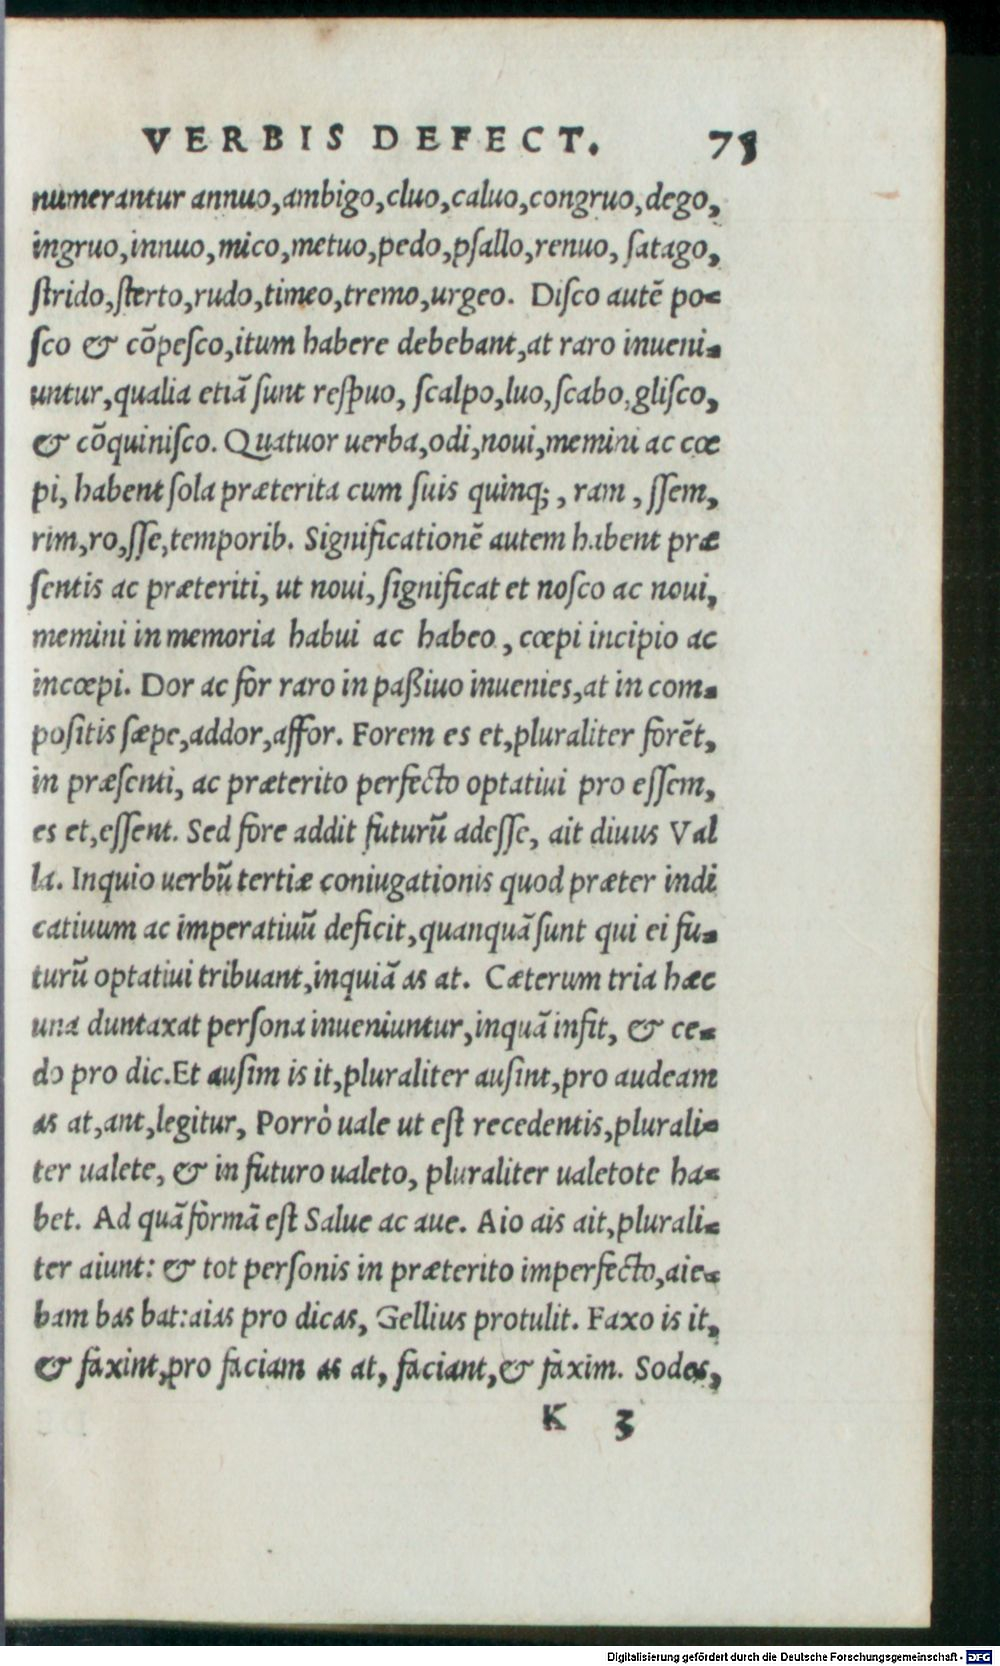 VERBIS DEFECT. 75
numerantur annuo,ambigo,cluo,caluo,congruo,dego,
ingruo,innuo,mico,metuo,pedo,pſallo,renuo, ſatago,
ſtrido,ſterto,rudo,timeo,tremo,urgeo. Diſco autē po-
ſco & cōpeſco,itum habere debebant,at raro inueni-
untur,qualia etiā ſunt reſpuo, ſcalpo,luo,ſcabo,gliſco,
& cōquiniſco. Quatuor uerba,odi,noui,memini ac cœ
pi, habent ſola præterita cum ſuis quinq;, ram, ſſem,
rim,ro,ſſe,temporib. Significationē autem habent præ
ſentis ac præteriti, ut noui, ſignificat et noſco ac noui,
memini in memoria habui ac habeo, cœpi incipio ac
incœpi. Dor ac for raro in paßiuo inuenies,at in com-
poſitis ſæpe,addor,affor. Forem es et,pluraliter forēt,
in præſenti, ac præterito perfecto optatiui pro eſſem,
es et,eſſent. Sed fore addit futurū adeſſe, ait diuus Val
la. Inquio uerbū tertiæ coniugationis quod præter indi
catiuum ac imperatiuū deficit,quanquā ſunt qui ei fu-
turū optatiui tribuant,inquiā as at. Cæterum tria hæc
una duntaxat perſona inueniuntur,inquā infit, & ce-
do pro dic.Et auſim is it,pluraliter auſint,pro audeam
as at,ant,legitur, Porrò uale ut eſt recedentis,plurali-
ter ualete, & in futuro ualeto, pluraliter ualetote ha-
bet. Ad quā formā eſt Salue ac aue. Aio ais ait,plurali-
ter aiunt: & tot perſonis in præterito imperfecto,aie-
bam bas bat:aias pro dicas, Gellius protulit. Faxo is it,
& faxint,pro faciam as at, faciant,& faxim. Sodes,
K 3
Digitalisierung gefördert durch die Deutsche Forschungsgemeinschaft - DFG